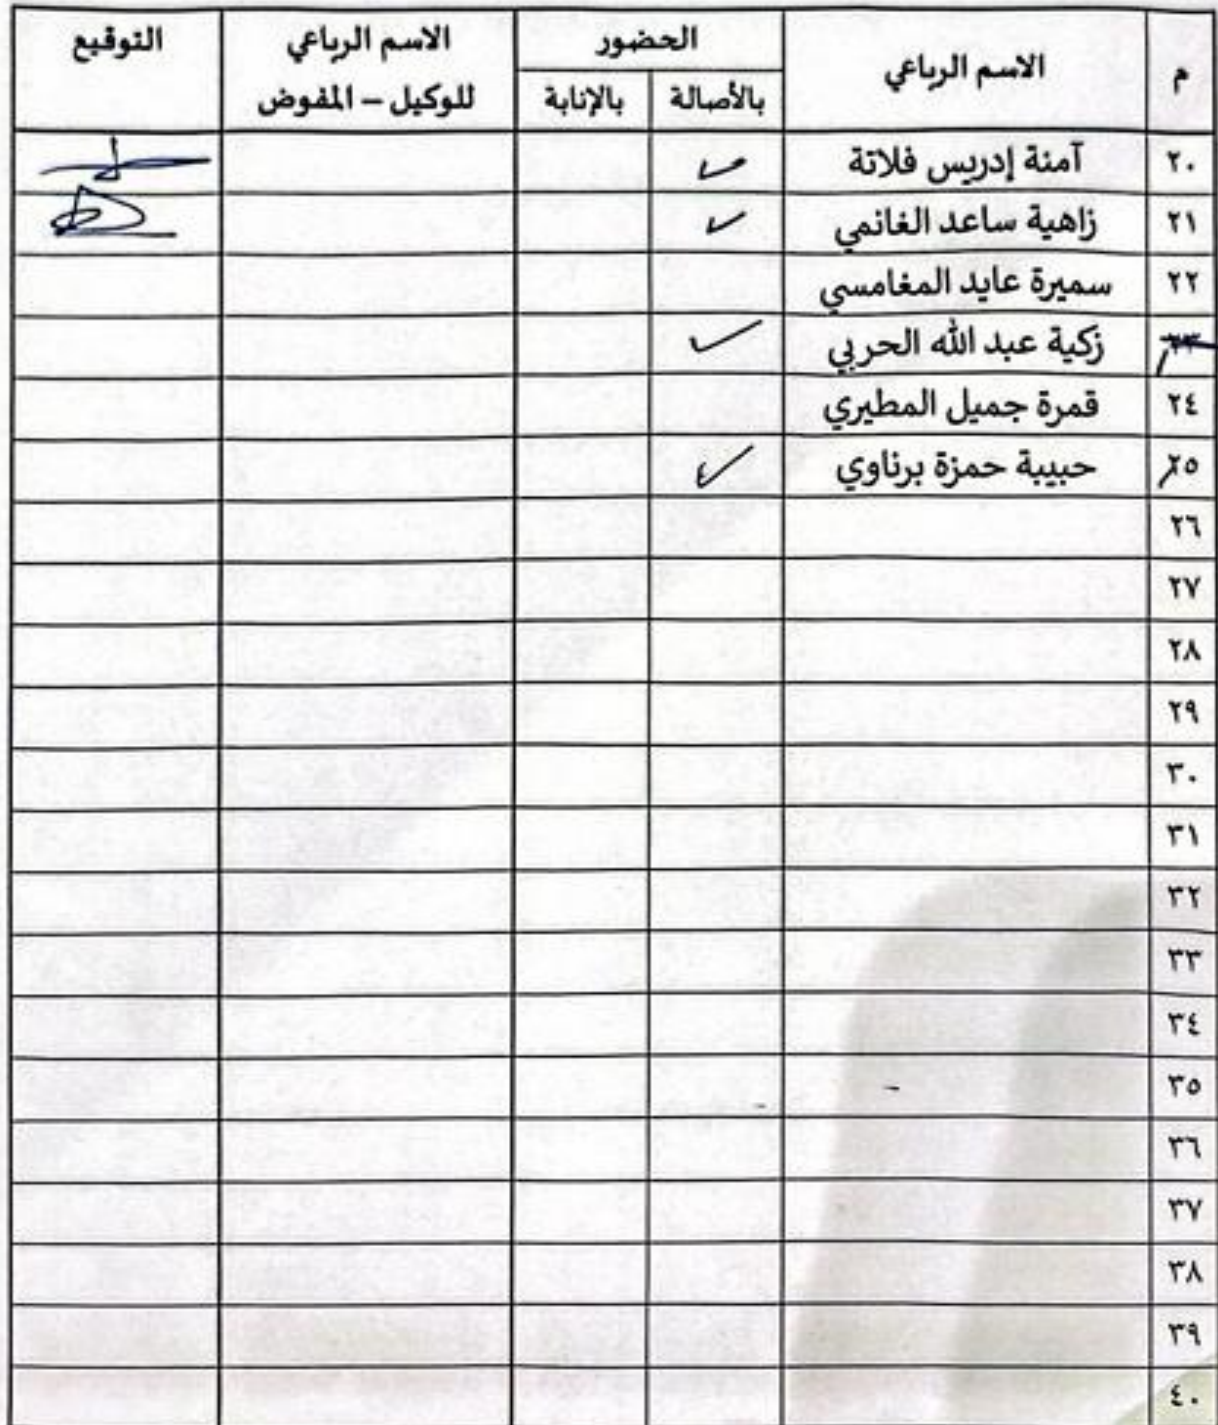 م الاسم الرباعي الحضور الاسم الرباعي للوكيل – المفوض التوقيع
بالأصالة بالإنابة
٢٠ آمنة إدريس فلاتة ✓
٢١ زاهية ساعد الغانمي ✓
٢٢ سميرة عايد المغامسي
٢٣ زكية عبد الله الحربي ✓
٢٤ قمرة جميل المطيري
٢٥ حبيبة حمزة برناوي ✓
٢٦
٢٧
٢٨
٢٩
٣٠
٣١
٣٢
٣٣
٣٤
٣٥
٣٦
٣٧
٣٨
٣٩
٤٠